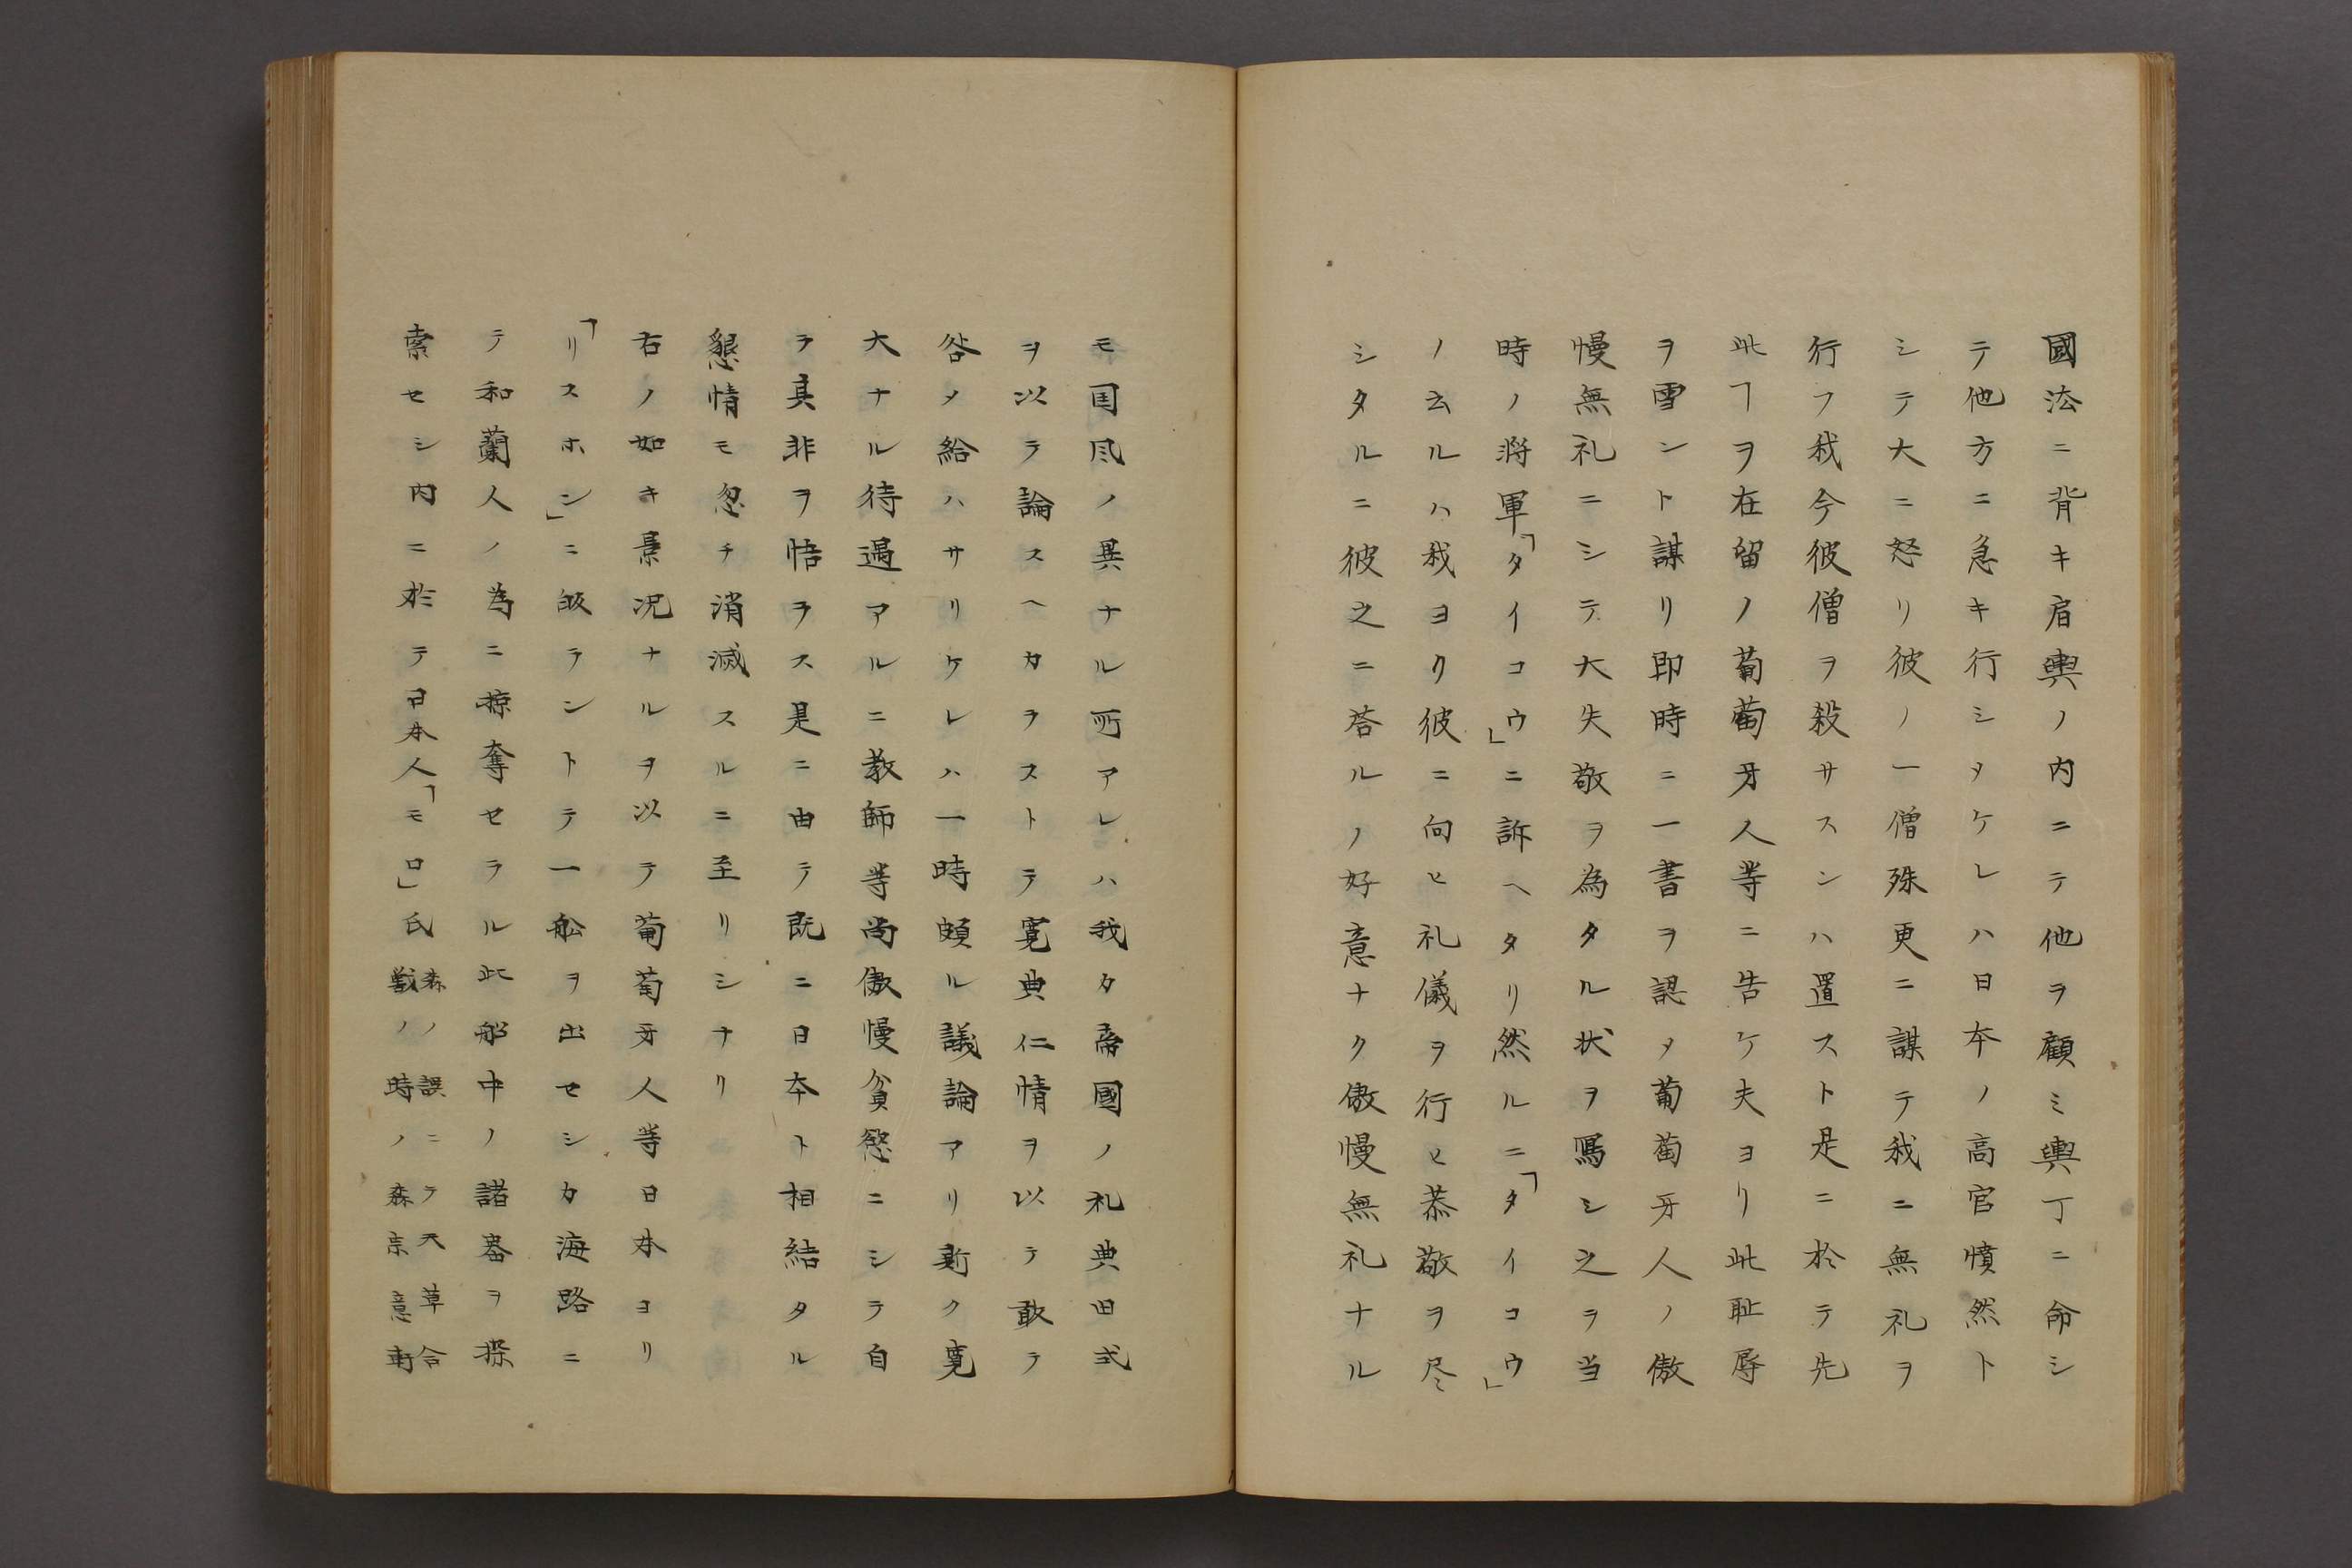 國法ニ背キ肩輿ノ内ニテ他ヲ顧ミ輿丁ニ命シ
テ他方ニ急キ行シメケレハ日本ノ高官憤然ト
シテ大ニ怒リ彼ノ一僧殊更ニ謀テ我ニ無礼ヲ
行フ我今彼僧ヲ殺サスンハ置スト是ニ於テ先
此ヿヲ在留ノ葡萄牙人等ニ告ケ夫ヨリ此耻辱
ヲ雪ント謀リ即時ニ一書ヲ認メ葡萄牙人ノ傲
慢無礼ニシテ大失敬ヲ為タル状ヲ寫シ之ヲ当
時ノ将軍「タイコウ」ニ訴ヘタリ然ルニ「タイコウ」
ノ云ルハ我ヨリ彼ニ向ヒ礼儀ヲ行ヒ恭敬ヲ尽
シタルニ彼之ニ荅ルノ好意ナク傲慢無礼ナル
モ国風ノ異ナル所アレハ我カ帝國ノ礼典旧式
ヲ以テ論スヘカラストテ寛典仁情ヲ以テ敢テ
咎メ給ハサリケレハ一時頗ル議論アリ斯ク寛
大ナル待遇アルニ教師等尚傲慢貪慾ニシテ自
ラ其非ヲ悟ラス是ニ由テ既ニ日本ト相結タル
懇情モ忽チ消滅スルニ至リシナリ
右ノ如キ景况ナルヲ以テ葡萄牙人等日本ヨリ
「リスホン」ニ皈ラントテ一舩ヲ出セシカ海路ニ
テ和蘭人ノ為ニ掠奪セラル此船中ノ諸器ヲ探
索セシ内ニ於テ日本人「モロ」氏森ノ誤ニテ天草合
戦ノ時ノ森宗意軒